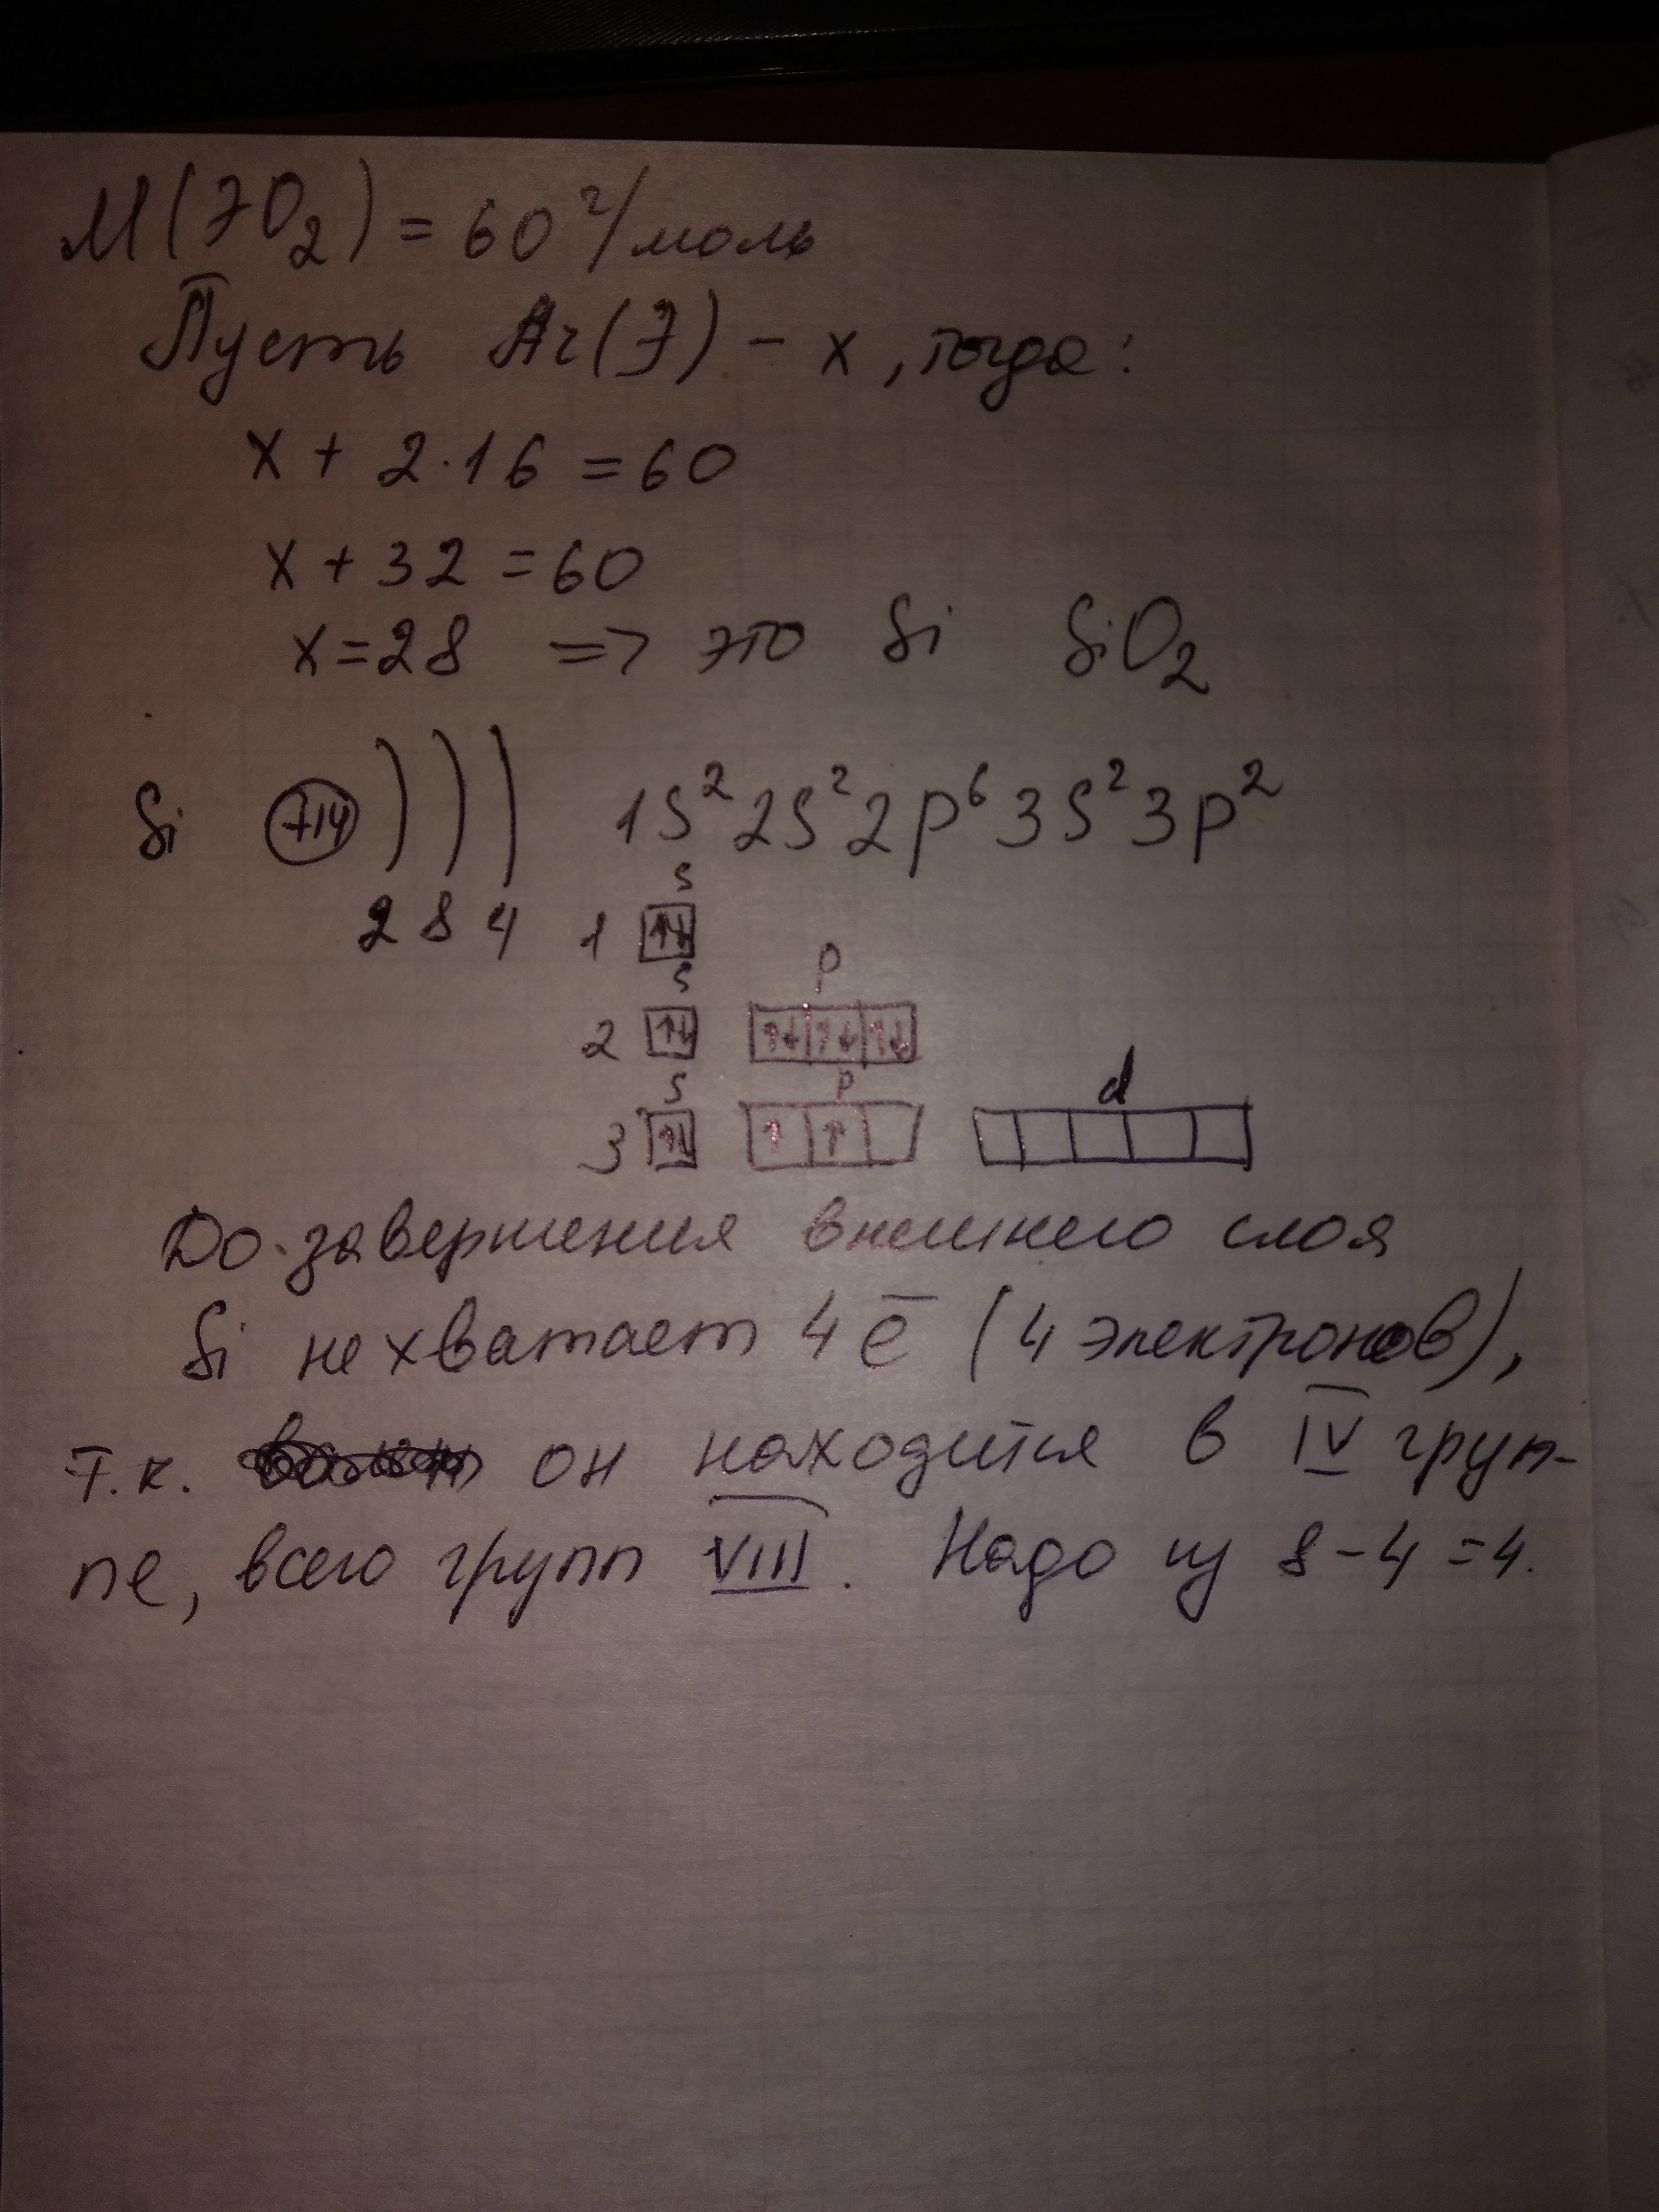 M(ЭO₂) = 60 г/моль
Пусть Ar(Э) - x, тогда:
x + 2·16 = 60
x + 32 = 60
x = 28 => это Si SiO₂
Si +14 ) ) ) 1s²2s²2p⁶3s²3p²
2 8 4
s
1 ↑↓
s p
2 ↑↓ ↑↓ ↑↓ ↑↓
s p d
3 ↑↓ ↑ ↑
До завершения внешнего слоя
Si не хватает 4 e̅ (4 электронов),
т.к. он находится в IV груп-
пе, всего групп VIII. Надо из 8-4=4.